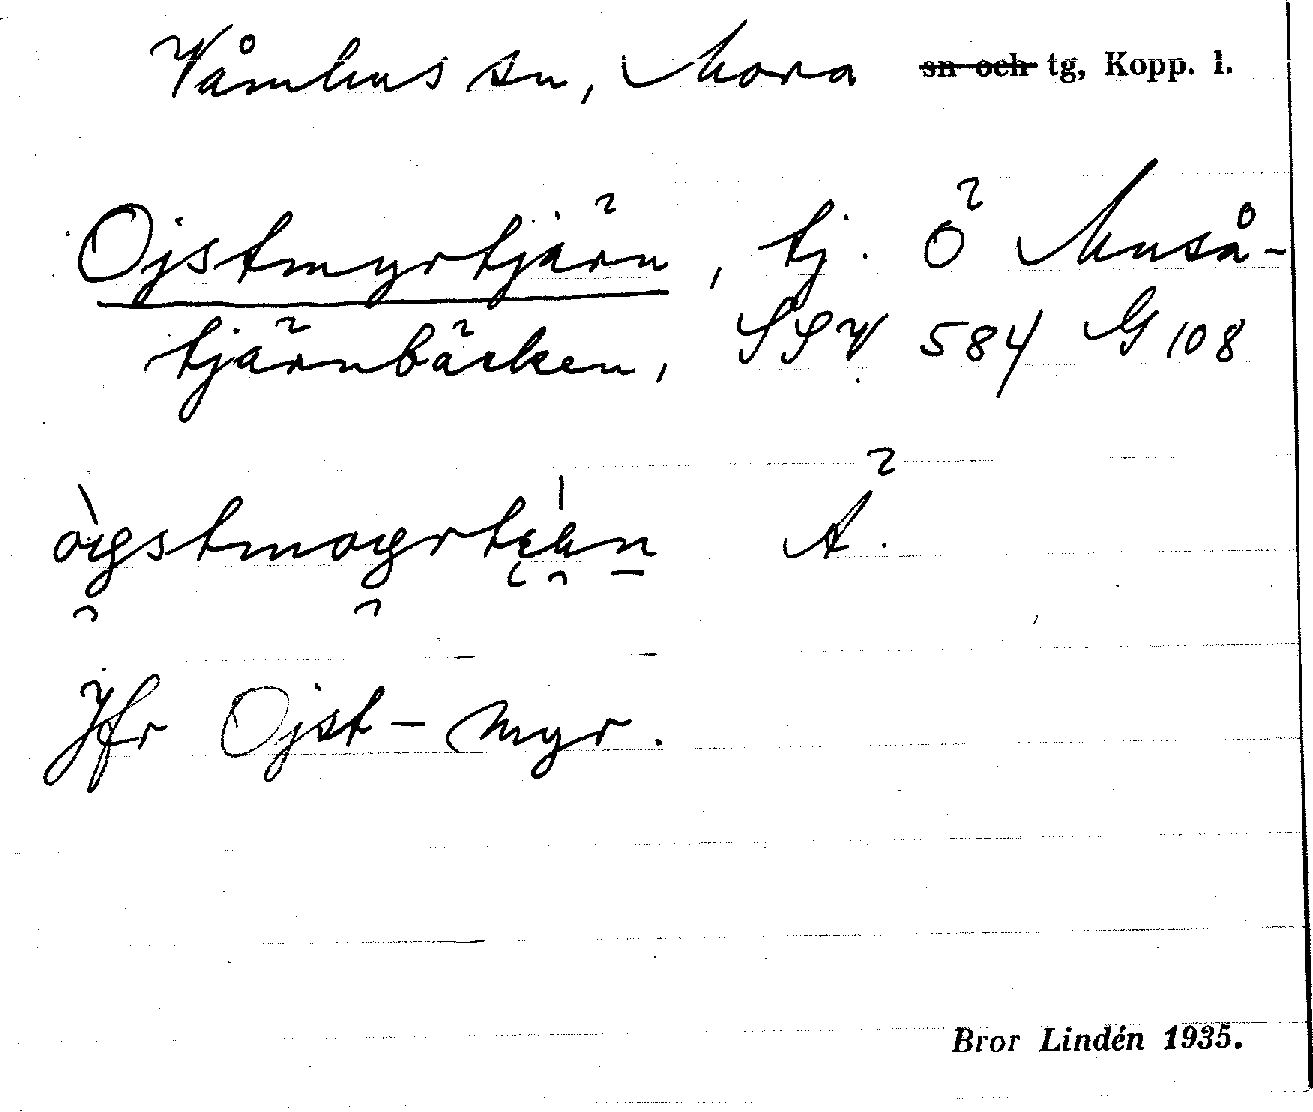 Våmhus sn, Mora sn och tg, Kopp. l.
Ojstmyrtjärn, tj. Ö Muså-
tjärnbäcken, SSV 584 G 108
Ä.
Jfr Ojst-myr.
Bror Lindén 1935.